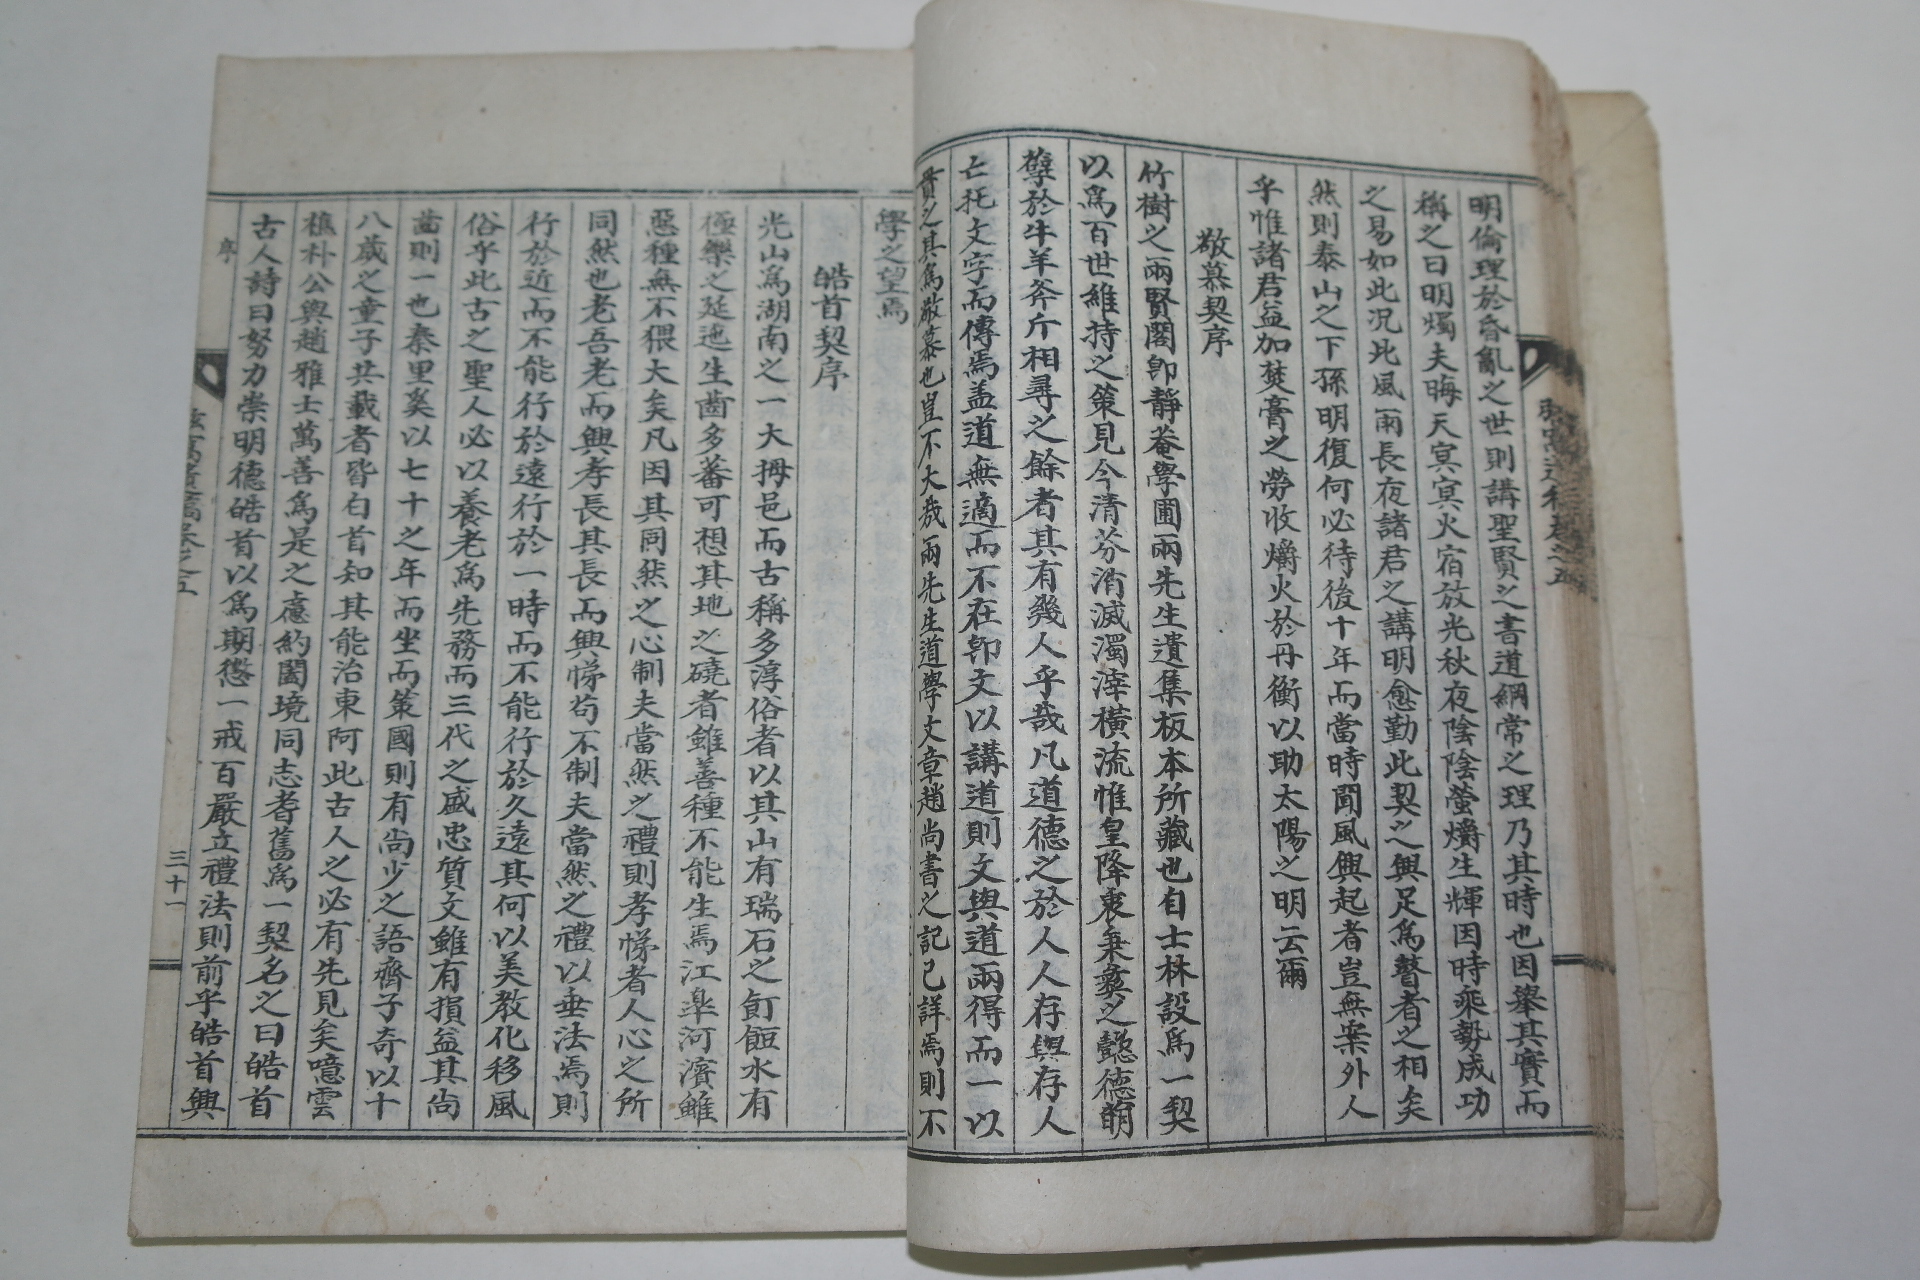 明倫理於昏亂之世則講聖賢之書道綱常之理乃其時也因擧其實而
稱之曰明燭夫晦天冥冥火宿放光秋夜陰陰螢爝生輝因時乘勢成功
之易如此況此風雨長夜諸君之講明愈勤此契之興足爲瞽者之相矣
然則泰山之下孫明復何必待後十年而當時聞風興起者豈無案外人
乎惟諸君益加焚膏之勞收爝火於丹衡以助太陽之明云爾
敬慕契序
竹樹之兩賢閣卽靜菴學圃兩先生遺集板本所藏也自士林設爲一契
以爲百世維持之策見今清芬消滅濁滓橫流惟皇降衷秉彝之懿德萌
孼於牛羊斧斤相尋之餘者其有幾人乎哉凡道德之於人人存與存人
亡托文字而傳焉盖道無適而不在卽文以講道則文與道兩得而一以
貫之其爲敬慕也豈不大哉兩先生道學文章趙尚書之記已詳焉則不
學之望焉
皓首契序
光山爲湖南之一大拇邑而古稱多淳俗者以其山有瑞石之飣餖水有
極樂之延迆生齒多蕃可想其地之磽者雖善種不能生焉江臯河濱雖
惡種無不猥大矣凡因其同然之心制夫當然之禮則孝悌者人心之所
同然也老吾老而興孝長其長而興悌苟不制夫當然之禮以垂法焉則
行於近而不能行於遠行於一時而不能行於久遠其何以美敎化移風
俗乎此古之聖人必以養老爲先務而三代之盛忠質文雖有損益其尚
齒則一也秦里奚以七十之年而坐而策國則有尚少之語齊子奇以十
八歲之童子共載者皆白首知其能治東阿此古人之必有先見矣噫雲
樵朴公與趙雅士萬善爲是之慮約闔境同志耆舊爲一契名之曰皓首
古人詩曰努力崇明德皓首以爲期愆一戒百嚴立禮法則前乎皓首興
序
卷之五
三十一